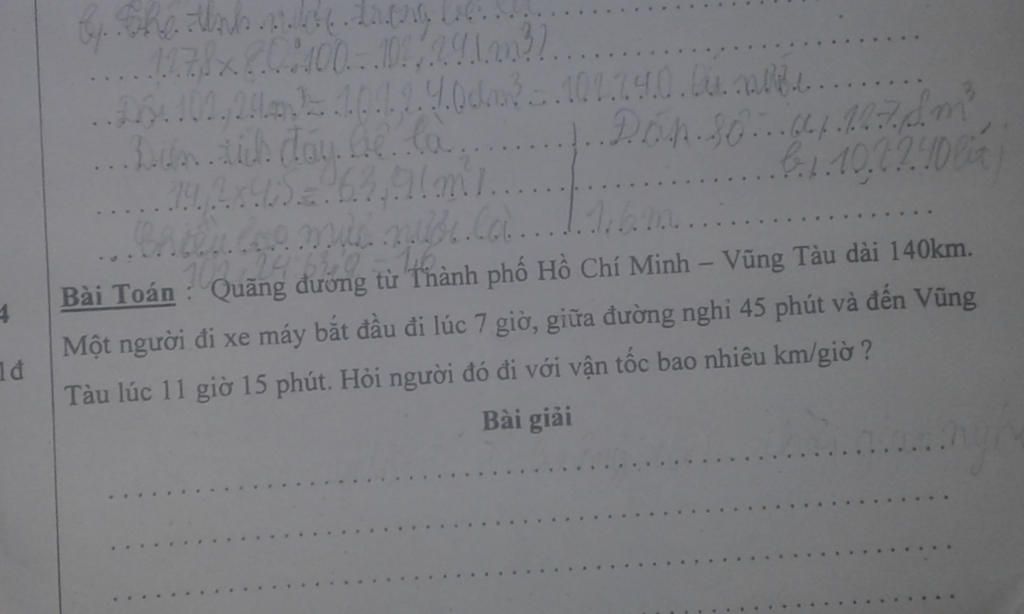 b, Thể tích nước trong bể là
127,8 x 80 : 100 = 102,24 (m³)
Đổi 102,24m³ = 102240dm³ = 102240 lít nước
Diện tích đáy bể là
14,2 x 4,5 = 63,9 (m²)
Chiều cao mức nước là
102,24 : 63,9 = 1,6
Đáp số a,
b, 102240 lít
1,6m
Bài Toán : Quãng đường từ Thành phố Hồ Chí Minh – Vũng Tàu dài 140km.
4
Một người đi xe máy bắt đầu đi lúc 7 giờ, giữa đường nghỉ 45 phút và đến Vũng
1đ
Tàu lúc 11 giờ 15 phút. Hỏi người đó đi với vận tốc bao nhiêu km/giờ ?
Bài giải